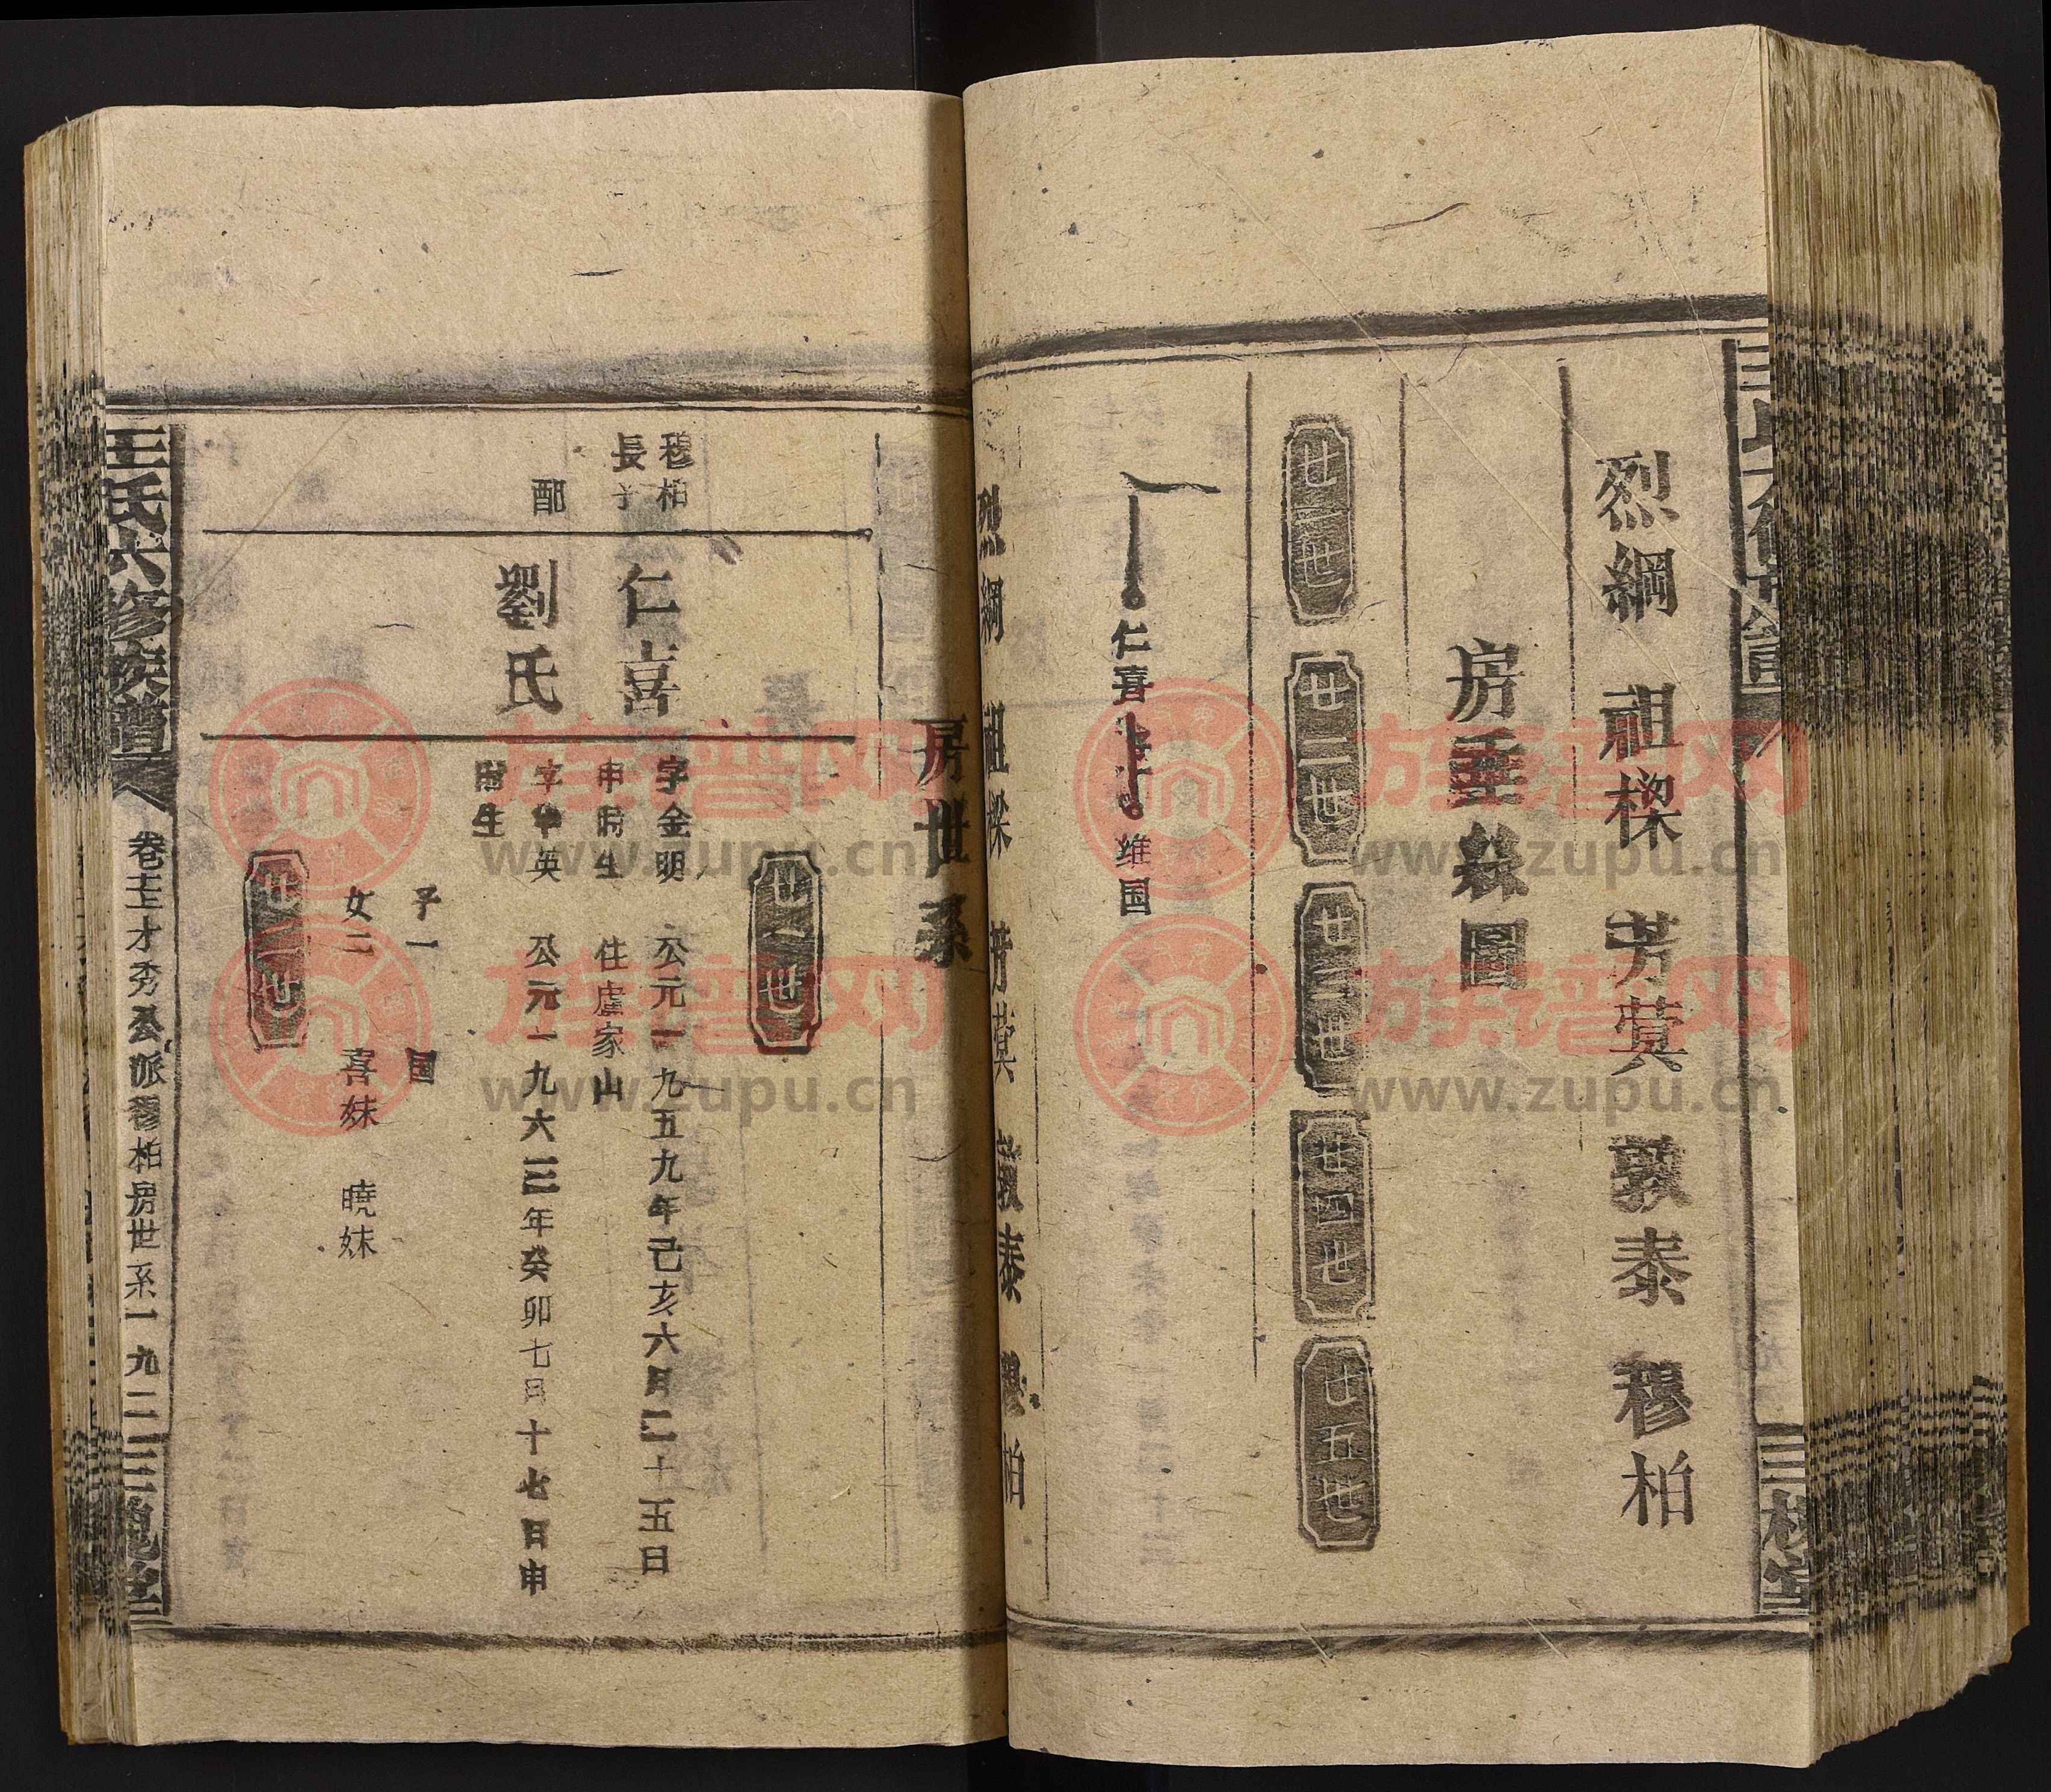 烈綱 祖樑 芳蓂 敦泰 穆柏
房垂絲圖
廿一世 廿二世 廿三世 廿四世 廿五世
仁喜 维国
烈綱 祖樑 芳蓂 敦泰 穆柏
房世系
廿一世
穆柏
長子
仁喜
字金明 公元一九五九年己亥六月二十五日
申時生 住盧家山
配
劉氏
字华英 公元一九六三年癸卯七月十七日申
時生
子一 国
女二 喜妹 曉妹
廿二世
王氏六修族譜
才秀公派穆柏房世系一 九二
三槐堂
三槐堂
族谱网
www.zupu.cn
族谱网
www.zupu.cn
族谱网
www.zupu.cn
族谱网
www.zupu.cn